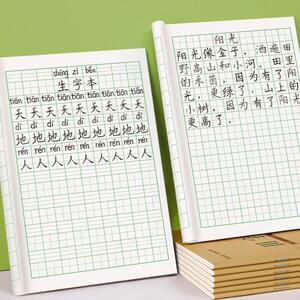 shēng zì běn
生字本
tiān tiān tiān tiān tiān tiān tiān tiān
天天天天天天天天
dì dì dì dì dì dì dì dì
地地地地地地地地
rén rén rén rén rén rén rén rén
人人人人人人人人
阳光
阳光像金子，洒遍田
野高山和小河。田里
的禾苗，因为有了阳
光，更绿了。山上的
小树，因为有了阳光，
更高了。